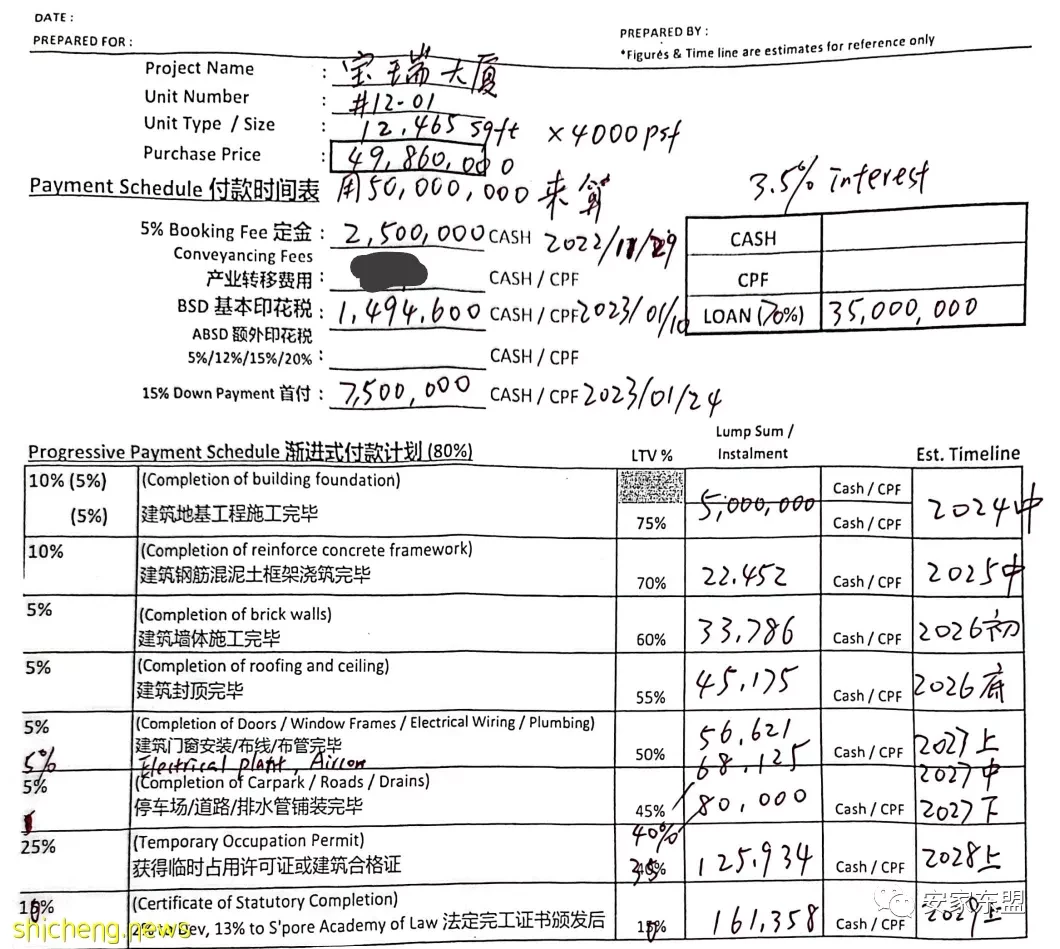 DATE :
PREPARED FOR :
PREPARED BY :
*Figures & Time line are estimates for reference only
Project Name : 宝瑞大厦
Unit Number : #12-01
Unit Type / Size : 12,465 sqft × 4000 psf
Purchase Price : 49,860,000
Payment Schedule 付款时间表 用 50,000,000 来算
3.5% interest
5% Booking Fee 定金 : 2,500,000 CASH 2022/11/29
Conveyancing Fees
产业转移费用 : CASH / CPF
BSD 基本印花税 : 1,494,600 CASH / CPF 2023/01/10
ABSD 额外印花税
5%/12%/15%/20% : CASH / CPF
15% Down Payment 首付 : 7,500,000 CASH / CPF 2023/01/24
CASH
CPF
LOAN (70%) 35,000,000
Progressive Payment Schedule 渐进式付款计划 (80%)
LTV %
Lump Sum /
Instalment
Est. Timeline
10% (5%) (Completion of building foundation) Cash / CPF
(5%) 建筑地基工程施工完毕 75% 5,000,000 Cash / CPF 2024中
10% (Completion of reinforce concrete framework)
建筑钢筋混泥土框架浇筑完毕 70% 22.452 Cash / CPF 2025中
5% (Completion of brick walls)
建筑墙体施工完毕 60% 33,786 Cash / CPF 2026初
5% (Completion of roofing and ceiling)
建筑封顶完毕 55% 45,175 Cash / CPF 2026底
5% (Completion of Doors / Window Frames / Electrical Wiring / Plumbing)
建筑门窗安装/布线/布管完毕 50% 56,621 Cash / CPF 2027上
5% Electrical plant, Aircon 68,125 2027中
5% (Completion of Carpark / Roads / Drains)
停车场/道路/排水管铺装完毕 45% 80,000 Cash / CPF 2027下
40%
25% (Temporary Occupation Permit)
获得临时占用许可证或建筑合格证 125,934 Cash / CPF 2028上
(Certificate of Statutory Completion)
2% to Dev, 13% to S'pore Academy of Law 法定完工证书颁发后 161,358 Cash / CPF 2029上
安家东盟
shicheng.news